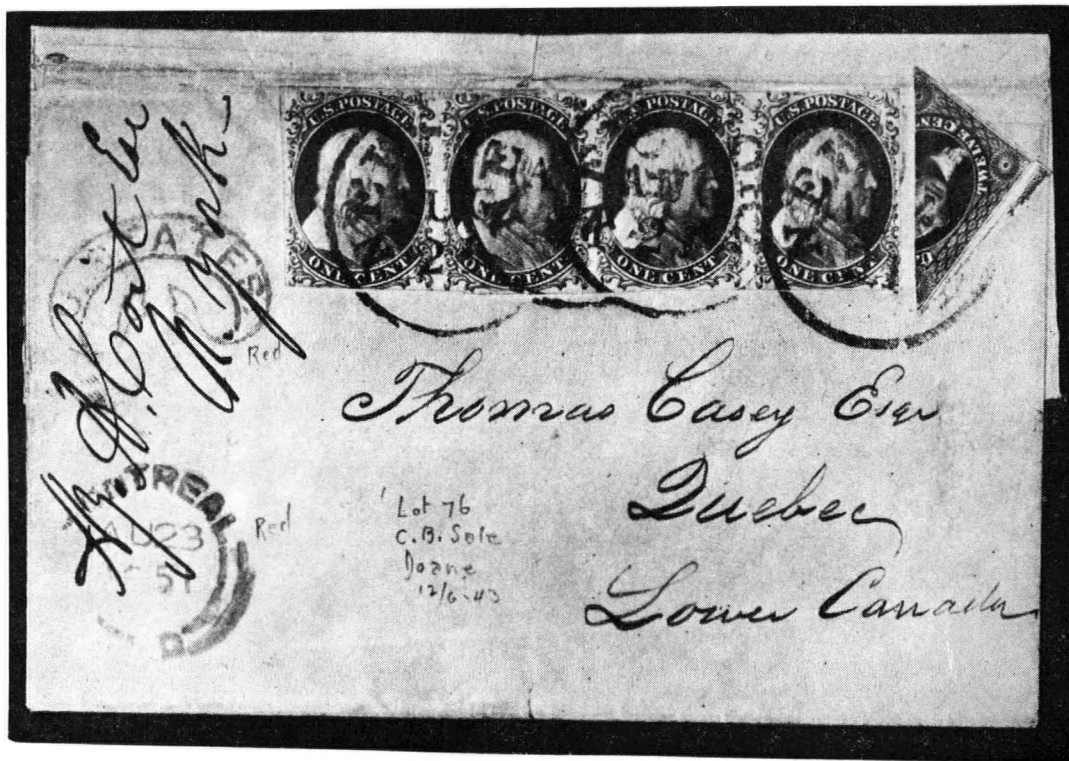 U.S. POSTAGE
ONE CENT
U.S. POSTAGE
ONE CENT
U.S. POSTAGE
ONE CENT
U.S. POSTAGE
ONE CENT
TWELVE CENTS
STATES
N. York
Red
Thomas Casey Esqr
Quebec
Lower Canada
MONTREAL
AU 23
51
Red
Lot 76
C.B. Sale
Doane
12/6-43